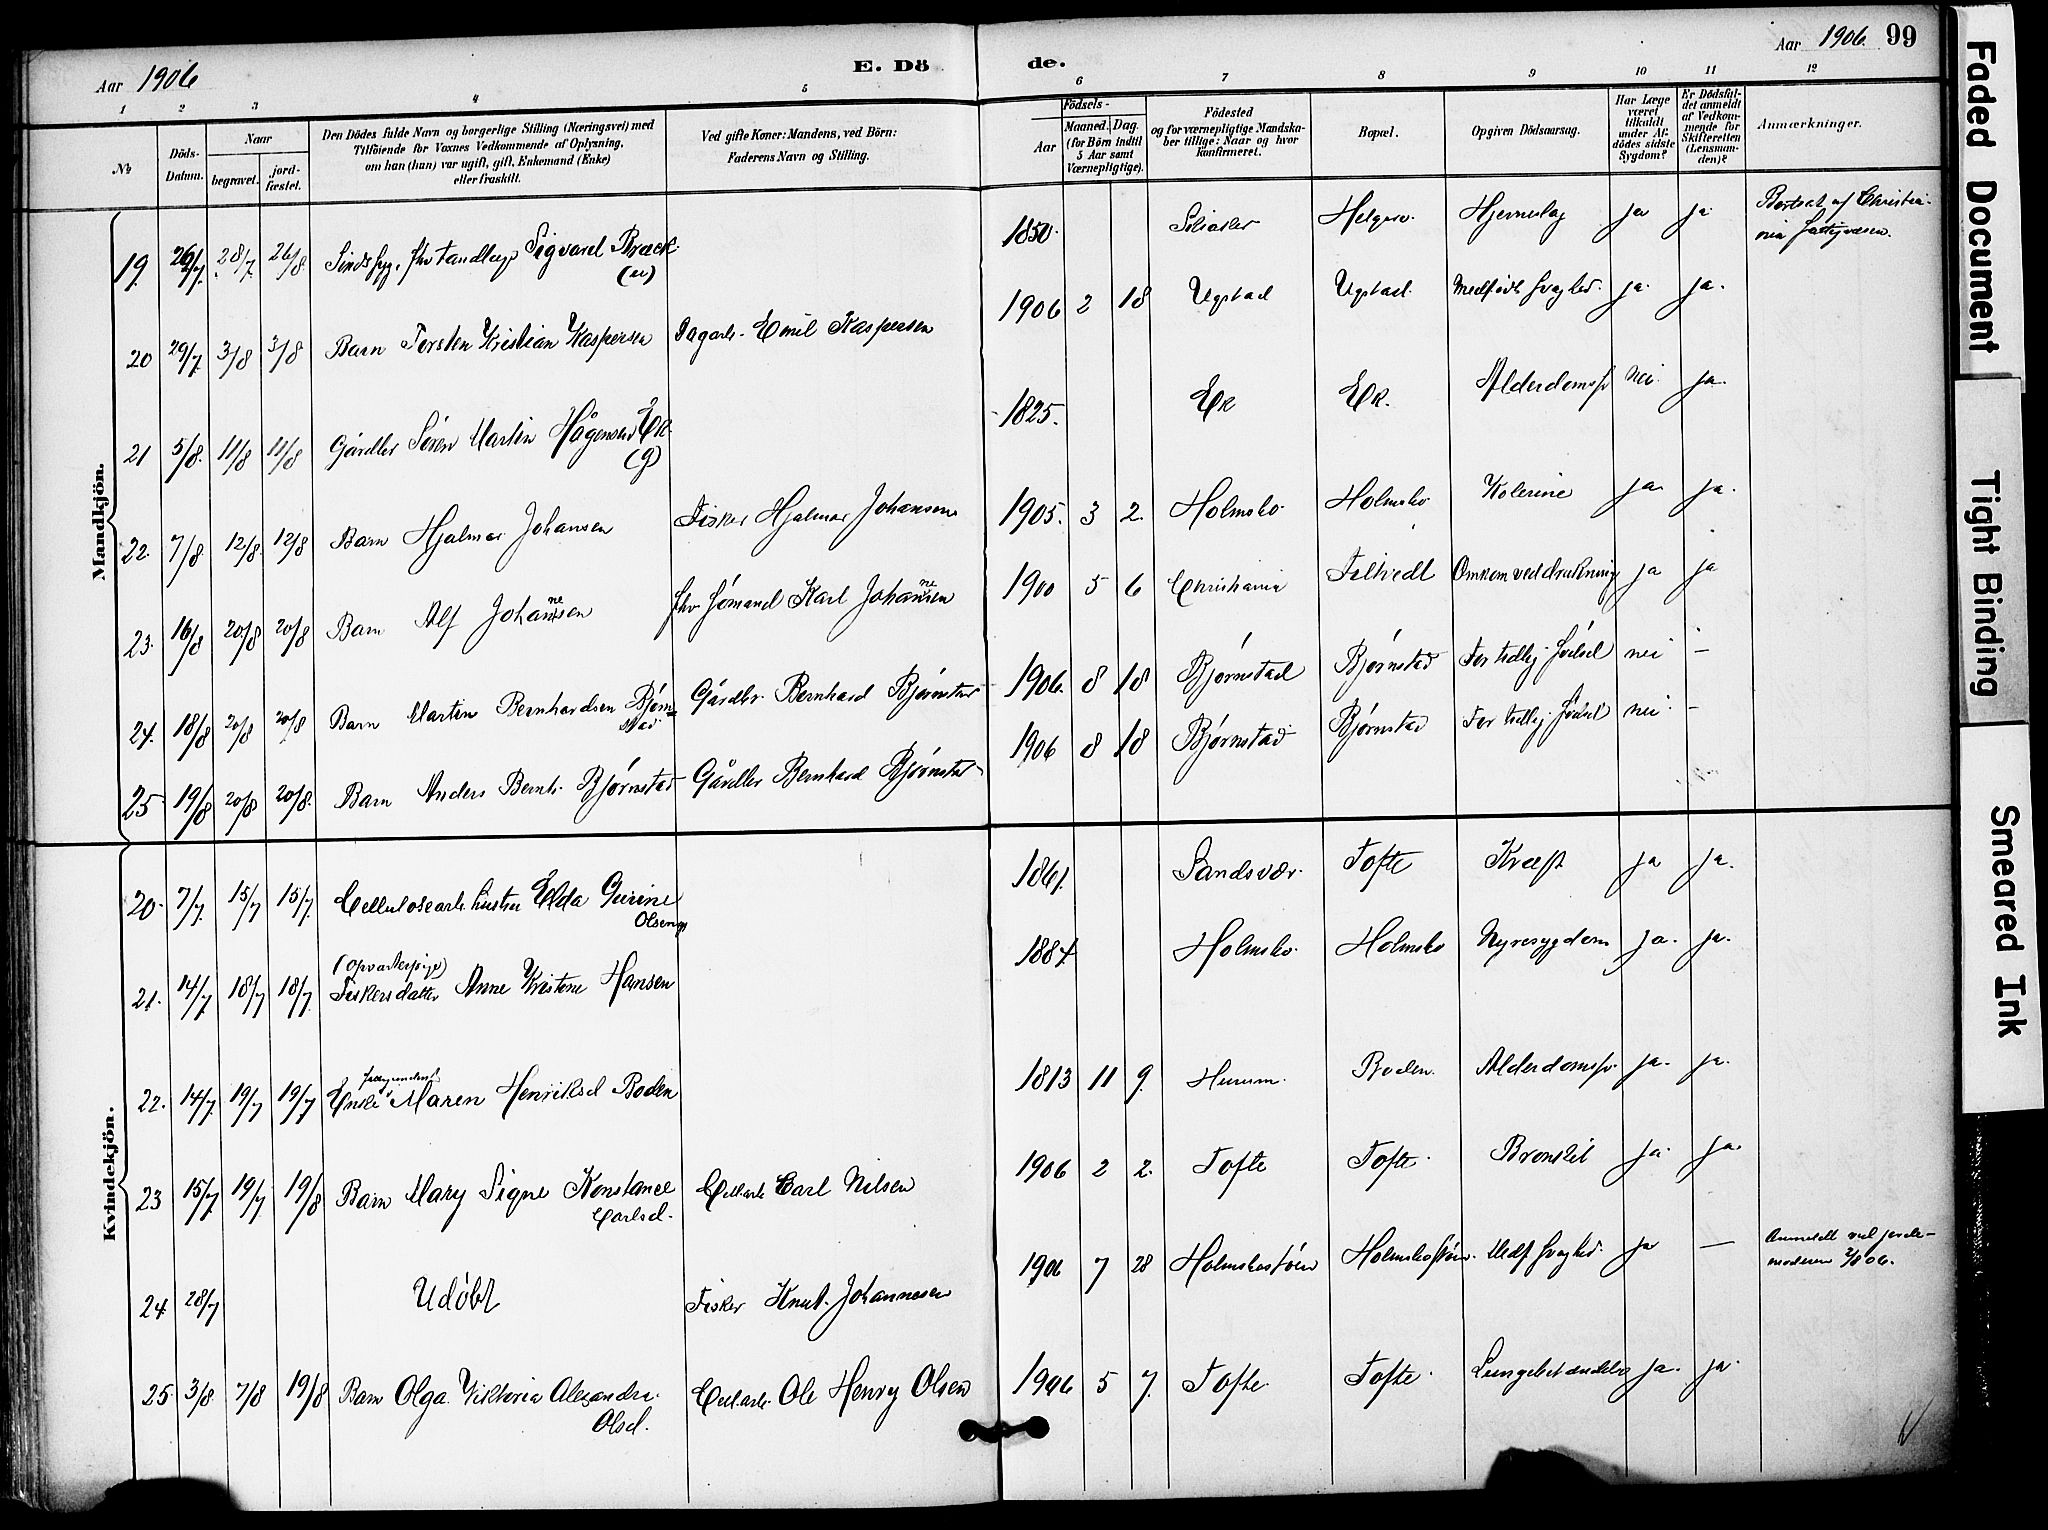 Aar 1906
E. Dö
de.
Aar 1906. 99
1 2 3 4 5 6 7 8 9 10 11 12
No
Döds-Datum.
Naar
begravet.
jord-fæstet.
Den Dödes fulde Navn og borgerlige Stilling (Næringsvei) med
Tilföiende for Voxnes Vedkommende af Oplysning,
om han (hun) var ugift, gift, Enkemand (Enke)
eller fraskilt.
Ved gifte Koner: Mandens, ved Börn:
Faderens Navn og Stilling.
Födsels-
Aar
Maaned. Dag.
(for Börn indtil
5 Aar samt
Værnepligtige).
Födested
og for værnepligtige Mandska-
ber tillige: Naar og hvor
konfirmeret.
Bopæl.
Opgiven Dödsaarsag.
Har Læge
været
tilkaldt
under Af-
dödes sidste
Sygdom?
Er Dödsfal-
det anmeldt
af Vedkom-
mende for
Skifteretten
(Lensman-
den)?
Anmærkninger.
Mandkjön.
19. 26/7 28/7 26/8 Sindssyg, fhv Tandlæge Sigvard Bræck (u) 1850 Helgero ja ja Bortsat af Christia-
nia
20 29/7 3/8 3/8 Barn Torsten Kristian Kaspersen Dagarb. Emil Kaspersen 1906 2 18 Ugstad Ugstad Medfødt svaghed. ja. ja.
21 5/8. 11/8 11/8 Gårdbr Søren Martin Hågensen Ek (g) 1825. Ek Ek. Alderdomssv nei. ja.
22. 7/8. 12/8. 12/8 Barn Hjalmar Johansen Fisker Hjalmar Johansen 1905. 3 2. Holmsbo. Holmsbo Kolerine ja ja.
23. 16/8 20/8 20/8 Barn Alf Johannesen fhv sømand Karl Johannesen 1900 5 6 Christiania Filtvedt Omkom ved drukning ja ja
24. 18/8 20/8 20/8 Barn Martin Bernhardsen Bjørn=
stad Gårdbr. Bernhard Bjørnstad 1906. 8 18 Bjørnstad Bjørnstad For tidlig fødsel nei –
25. 19/8 20/8 20/8. Barn Anders Bernh. Bjørnstad Gårdbr Bernhard Bjørnstad 1906 8 18 Bjørnstad Bjørnstad For tidlig fødsel nei. –
Kvindekjön.
20. 7/7. 15/7 15/7. Cellulosearb. hustru Elda Gurine
Olsen 1861. Sandsvær. Tofte Kræft ja ja.
(Opvarterpige)
21. 14/7. 18/7 18/7. Fiskersdatter Anne Kristine Hansen 1884. Holmsbo. Holmsbo Nyresygdom ja. ja.
22. 14/7. 19/7 19/7 Enke Maren Henriksd Boden 1813 11 9. Hurum. Boden. Alderdomssv. ja. ja.
23 15/7 19/7. 19/8 Barn Mary Signe Konstance
Carlsd. Cell.arb Carl Nilsen 1906 2 2. Tofte Tofte. Bronkit ja. ja.
24. 28/7 Udøbt Fisker Knut Johannesen 1906 7 28 Holmsbostøen Holmsbostøen. Medf svaghed. ja – Anmeldt ved jorde-
moderen 2/8 06.
25. 3/8. 7/8 19/8 Barn Olga Viktoria Alexandra
Olsd. Cell.arb. Ole Henry Olsen 1906 5 7. Tofte. Tofte. Lungebetændelse ja. ja.
Faded Document
Tight Binding
Smeared Ink